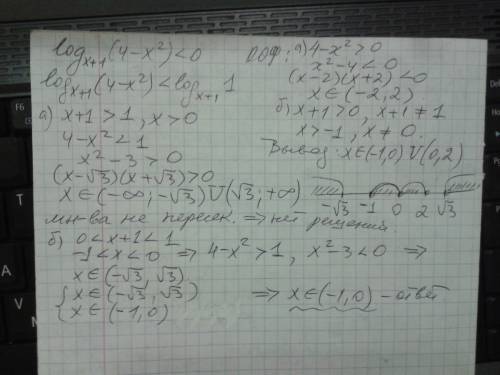 log_{x+1}(4-x²)<0
log_{x+1}(4-x²)<log_{x+1} 1
а) x+1>1, x>0
4-x²<1
x²-3>0
(x-√3)(x+√3)>0
x∈(-∞;-√3)U(√3;+∞)
мн-ва не пересек. ⇒ нет решений.
б) 0<x+1<1
-1<x<0 ⇒ 4-x²>1, x²-3<0 ⇒
x∈(-√3, √3)
{ x∈(-√3, √3)
x∈(-1,0) ⇒ x∈(-1,0) - ответ
ООФ: а) 4-x²>0
x²-4<0
(x-2)(x+2)<0
x∈(-2,2)
б) x+1>0, x+1≠1
x>-1, x≠0.
Вывод: x∈(-1,0)U(0,2)
-√3 -1 0 2 √3
F6